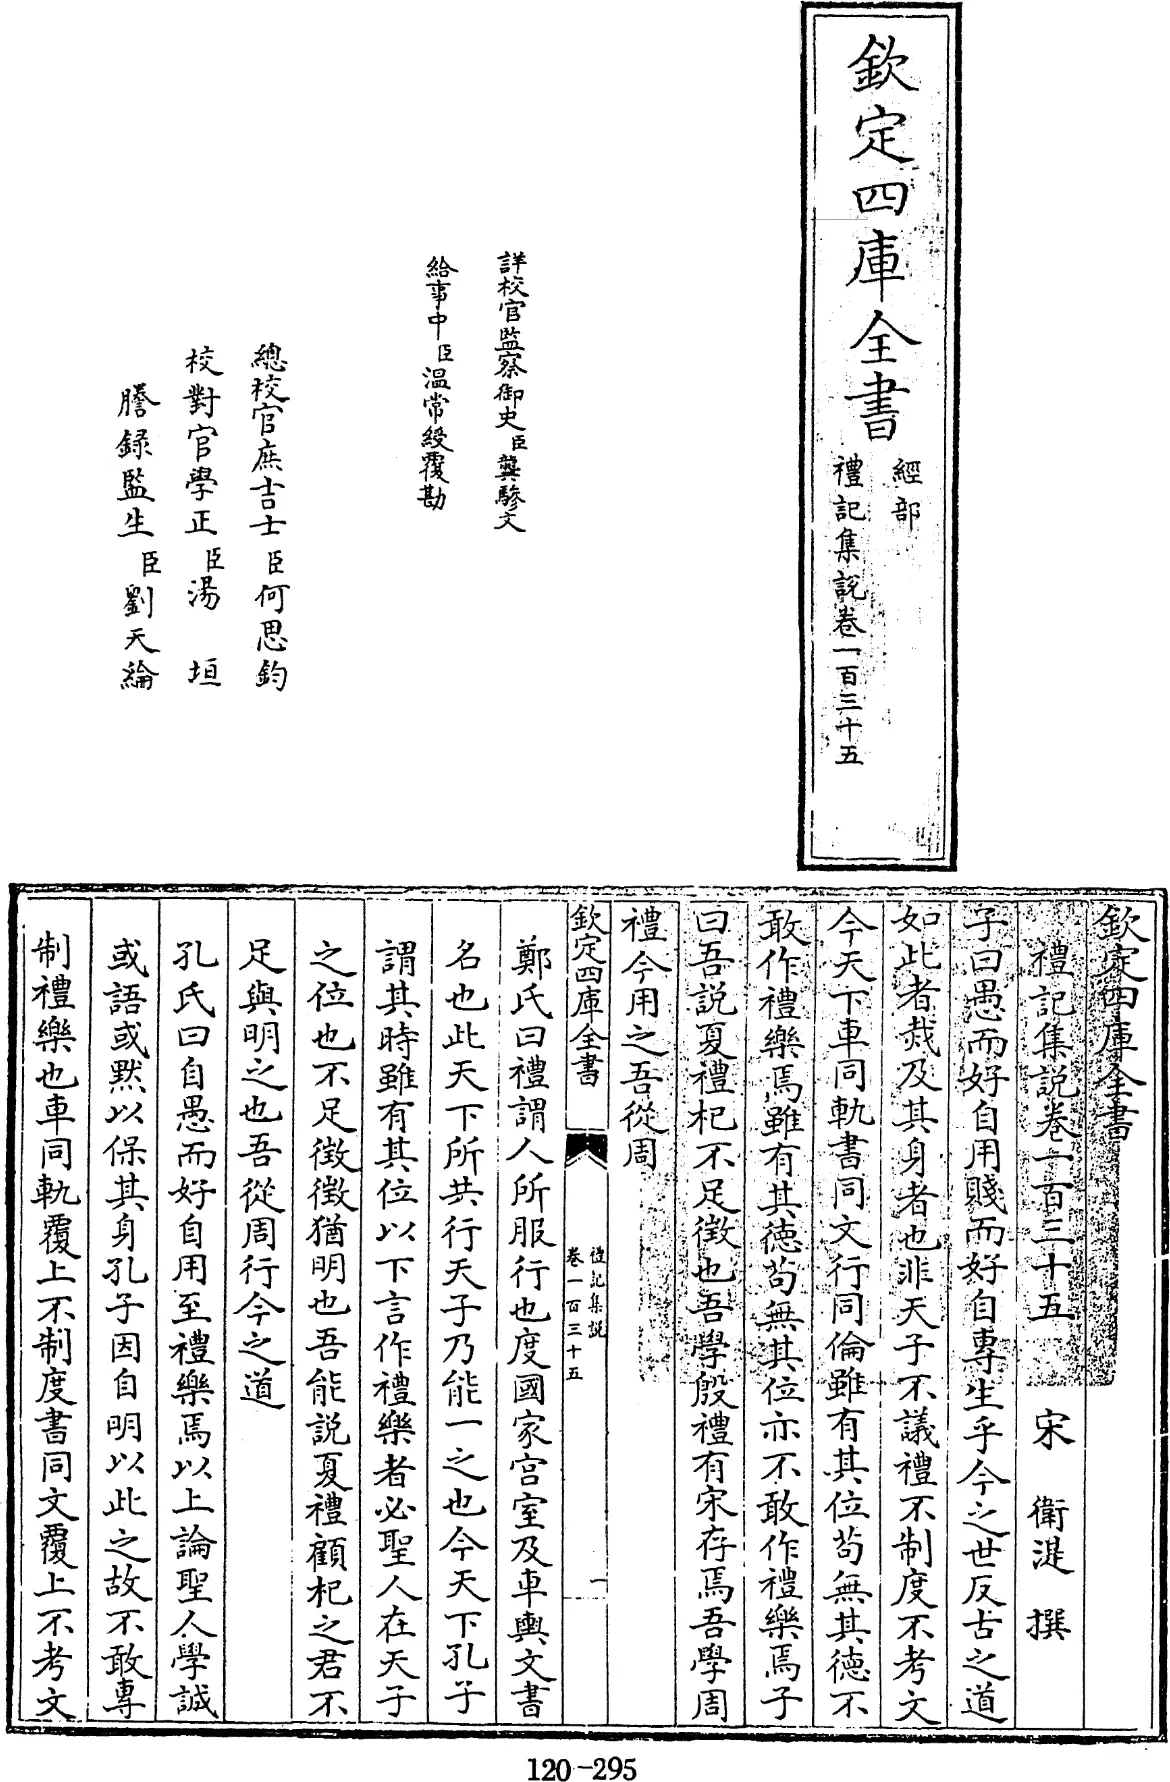 欽定四庫全書
經部
禮記集説卷一百三十五
詳校官監察御史臣龔驂文
給事中臣溫常綬覆勘
總校官庶吉士臣何思鈞
校對官學正臣湯垣
謄録監生臣劉天綸
欽定四庫全書
禮記集説卷一百三十五 宋 衛湜 撰
子曰愚而好自用賤而好自專生乎今之世反古之道
如此者烖及其身者也非天子不議禮不制度不考文
今天下車同軌書同文行同倫雖有其位茍無其徳不
敢作禮樂焉雖有其徳茍無其位亦不敢作禮樂焉子
曰吾説夏禮杞不足徴也吾學殷禮有宋存焉吾學周
禮今用之吾從周
欽定四庫全書
禮記集説
卷一百三十五
一
鄭氏曰禮謂人所服行也度國家宫室及車輿文書
名也此天下所共行天子乃能一之也今天下孔子
謂其時雖有其位以下言作禮樂者必聖人在天子
之位也不足徴徴猶明也吾能説夏禮顧杞之君不
足與明之也吾從周行今之道
孔氏曰自愚而好自用至禮樂焉以上論聖人學誠
或語或黙以保其身孔子因自明以此之故不敢專
制禮樂也車同軌覆上不制度書同文覆上不考文
120-295